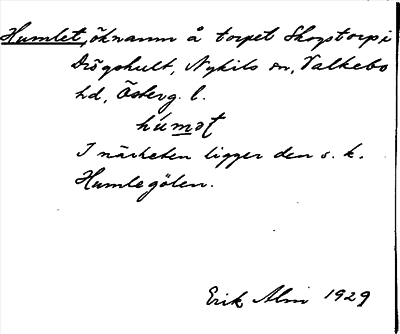 Humlet, öknamn å torpet Skogstorp i
Drögshult, Nykils sn, Valkebo
hd, Österg. l.
húmət
I närheten ligger den s. k.
Humlegölen.
Erik Alm 1929